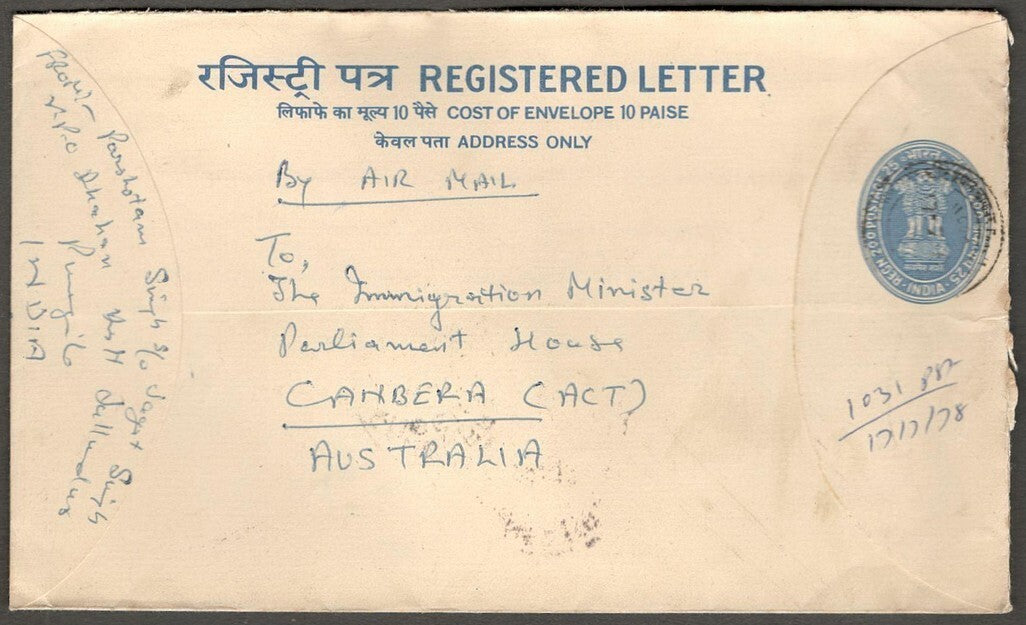 रजिस्ट्री पत्र REGISTERED LETTER
लिफाफे का मूल्य 10 पैसे COST OF ENVELOPE 10 PAISE
केवल पता ADDRESS ONLY
By AIR MAIL
To,
The Immigration Minister
Parliament House
CANBERA (ACT)
AUSTRALIA
FROM:- Parshotam Singh S/o Jagat Singh
V.P.O Dhahan Jullundur
Punjab
INDIA
भारत
REGN 200 POSTAGE 25
INDIA
1031
17/7/78